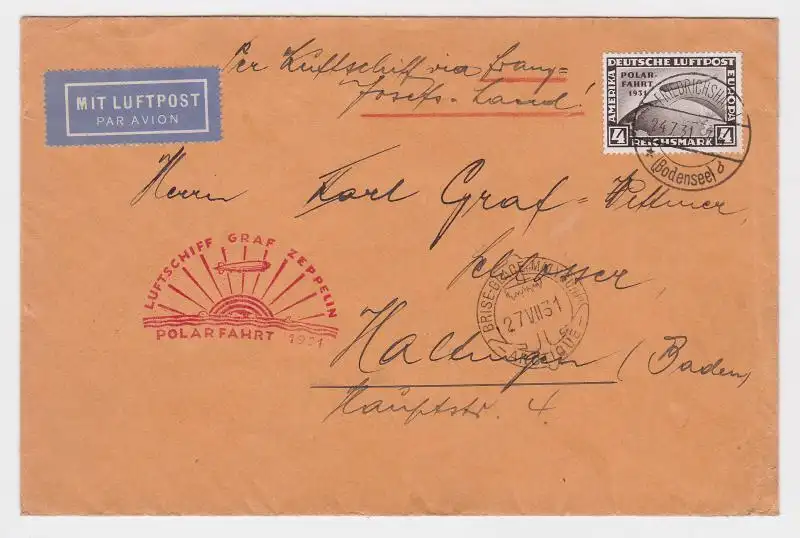 Per Luftschiff via Franz=
Josefs-Land!
MIT LUFTPOST
PAR AVION
DEUTSCHE LUFTPOST
POLAR-
FAHRT
1931
AMERIKA
EUROPA
4 REICHSMARK 4
FRIEDRICHSHAFEN
24.7.31
(Bodensee) d
Herrn Karl Graf-Pittmer,
Schlosser,
LUFTSCHIFF GRAF ZEPPELIN
POLARFAHRT 1931
BRISE-GLACE
27 VII 31
ARCTIQUE
Haltingen (Baden)
Hauptstr. 4.